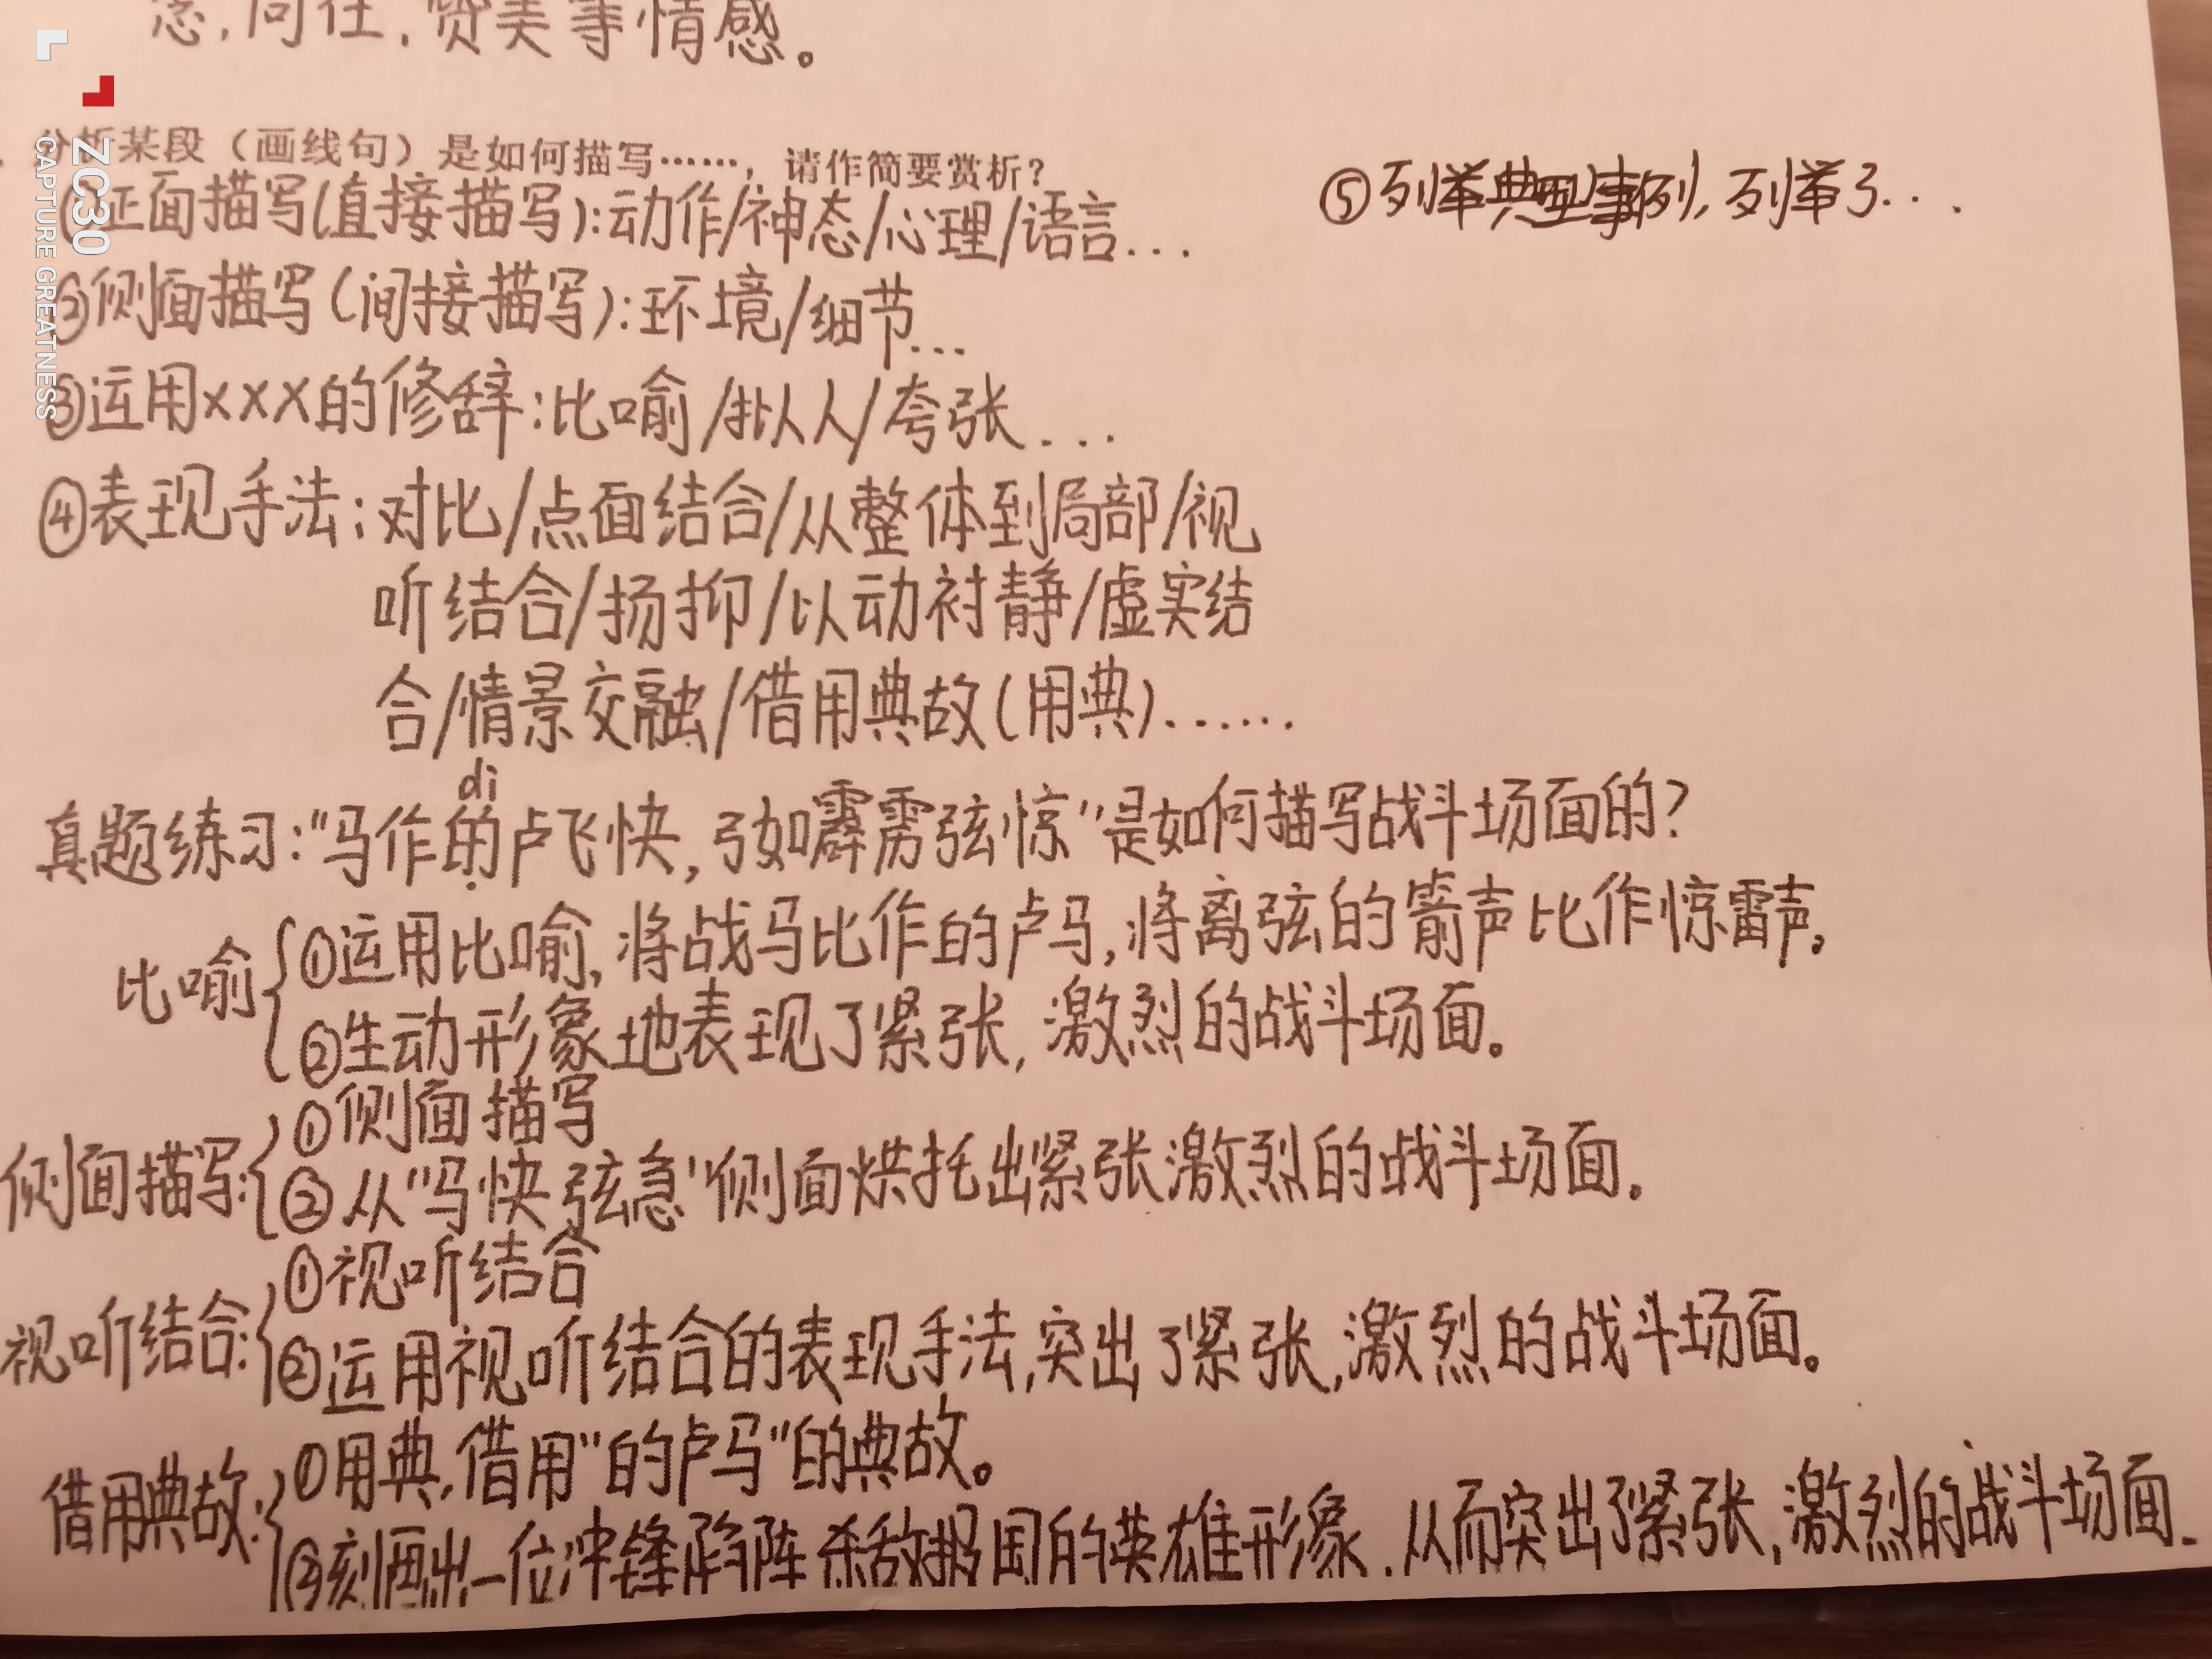 念，向往，赞美等情感。
分析某段（画线句）是如何描写……，请作简要赏析？
①正面描写(直接描写):动作/神态/心理/语言...
②侧面描写(间接描写):环境/细节...
③运用×××的修辞:比喻/拟人/夸张...
④表现手法:对比/点面结合/从整体到局部/视
听结合/扬抑/以动衬静/虚实结
合/情景交融/借用典故(用典)......
⑤列举典型事例,列举了...
di
真题练习:"马作的卢飞快,弓如霹雳弦惊"是如何描写战斗场面的?
比喻
①运用比喻,将战马比作的卢马,将离弦的箭声比作惊雷声。
②生动形象地表现了紧张,激烈的战斗场面。
侧面描写:
①侧面描写
②从"马快弦急"侧面烘托出紧张激烈的战斗场面。
视听结合:
①视听结合
②运用视听结合的表现手法,突出了紧张,激烈的战斗场面。
借用典故:
①用典,借用"的卢马"的典故。
②刻画出一位冲锋陷阵杀敌报国的英雄形象.从而突出了紧张,激烈的战斗场面.
ZC30
CAPTURE GREATNESS